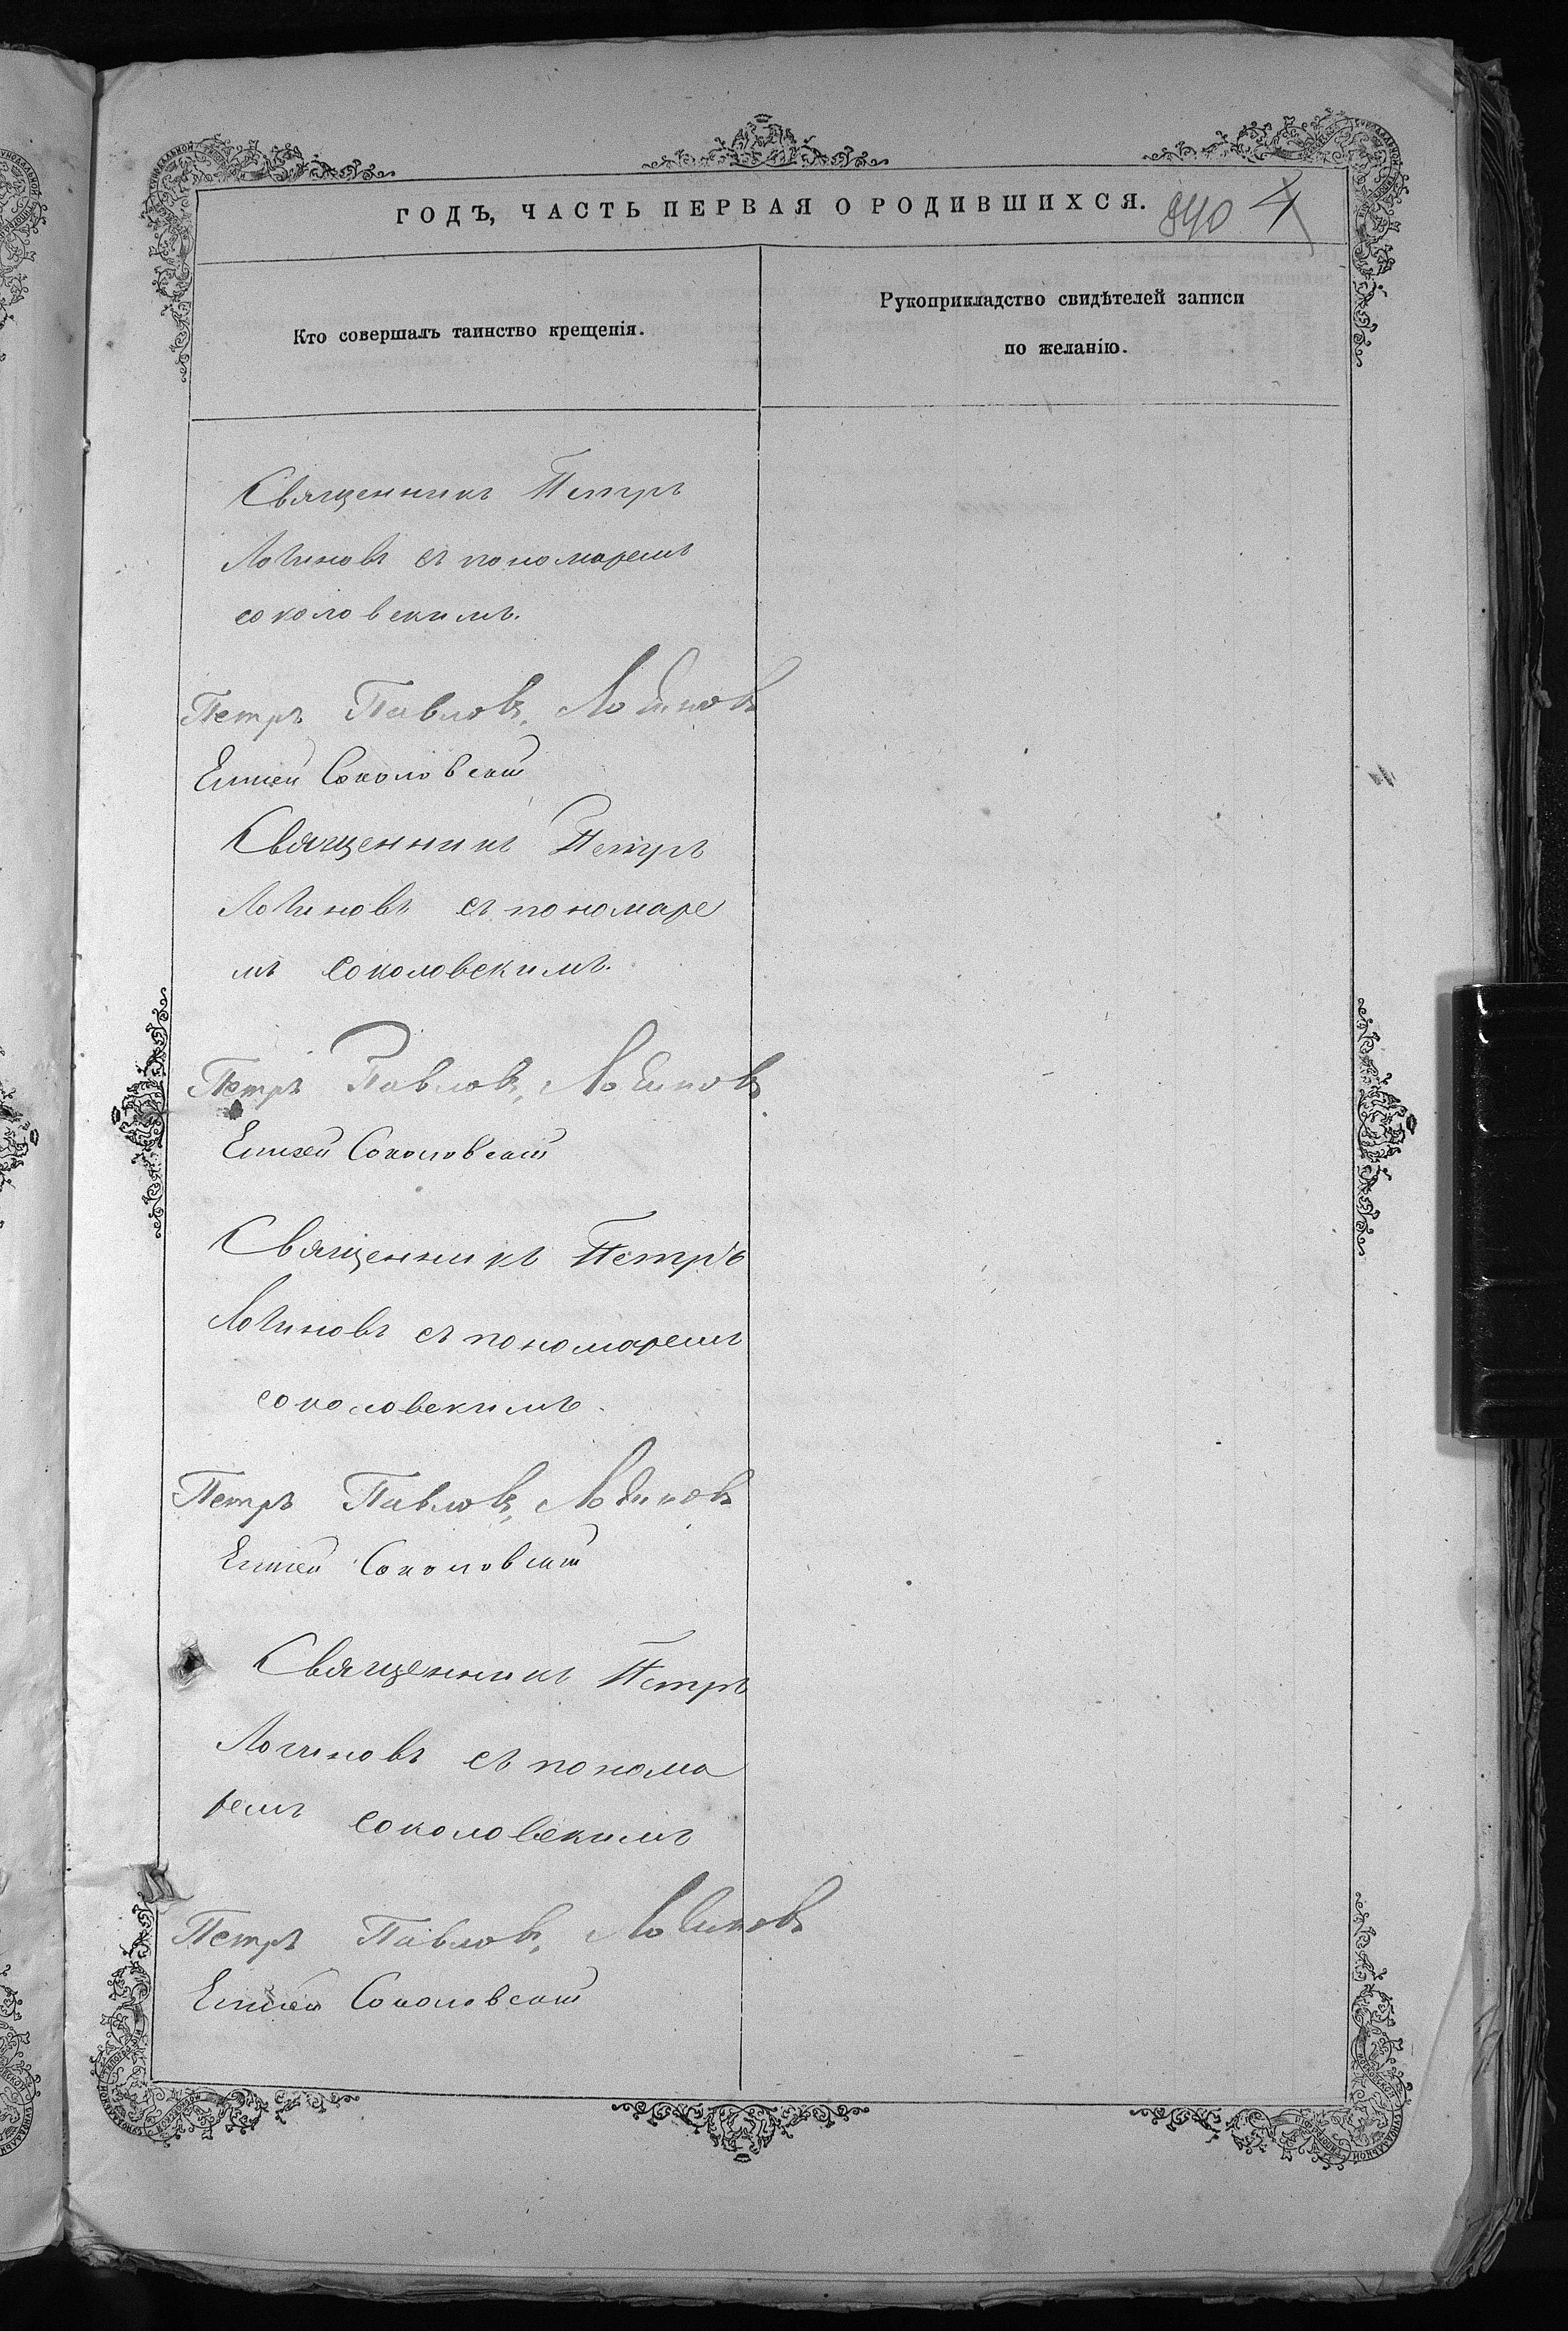 ГОДЪ, ЧАСТЬ ПЕРВАЯ О РОДИВШИХСЯ.
840 4
Кто совершалъ таинство крещенія.
Рукоприкладство свидѣтелей записи
по желанію.
Священникъ Петръ
Логиновъ съ пономаремъ
соколовскимъ.
Петръ Павловъ, Логиновъ
Елисей Соколовскій
Священникъ Петръ
Логиновъ съ пономаре
мъ Соколовскимъ.
Петръ Павловъ, Логиновъ
Елисей Соколовскій
Священникъ Петръ
Логиновъ съ пономаремъ
соколовскимъ.
Петръ Павловъ, Логиновъ
Елисей Соколовскій
Священникъ Петръ
Логиновъ съ понома
ремъ Соколовскимъ
Петръ Павловъ, Логиновъ
Елисей Соколовскій